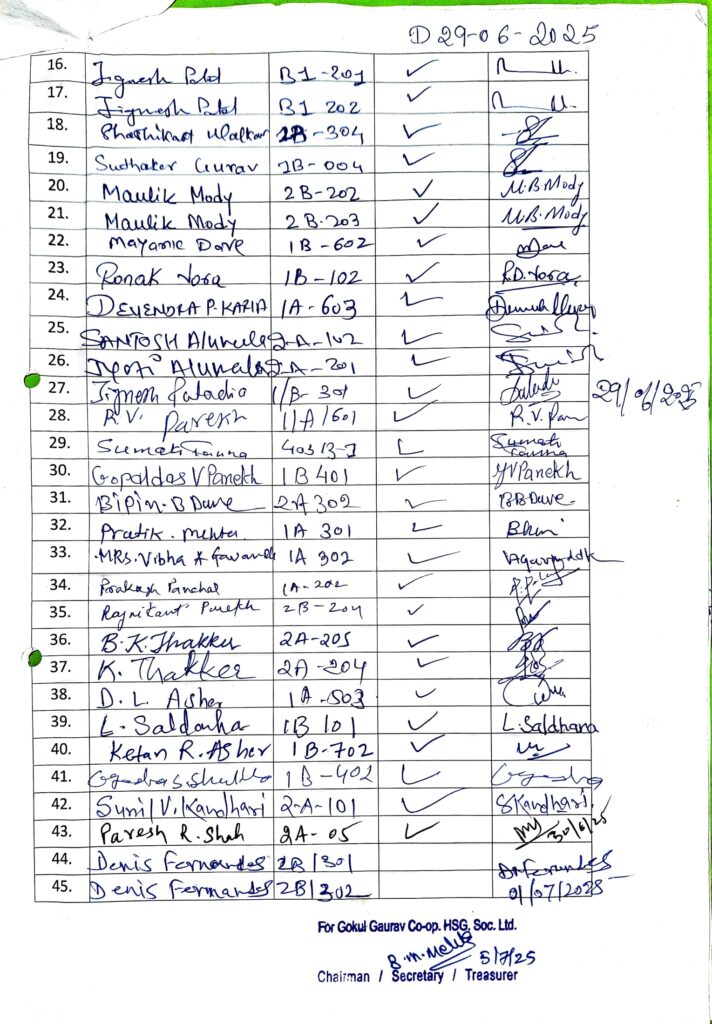 D 29-06-2025
16. Jignesh Patel B1-201 ✓
17. Jignesh Patel B1 202 ✓
18. Shashikant 1B-304 ✓
19. Sudhakar Gurav 1B-004 ✓
20. Maulik Mody 2B-202 ✓ M.B.Mody
21. Maulik Mody 2B-203 ✓ M.B.Mody
22. Mayank Dave 1B-602 ✓
23. Ronak Vora 1B-102 ✓ R.D.Vora
24. DEVENDRA P. KARIA 1A-603 ✓
25. SANTOSH 2-A-102 ✓
26. Jyoti 2-A-201 ✓
27. Jignesh 1/B-301 ✓ 29/06/2025
28. R.V. Parekh 1/A/601 ✓
29. Sumati ✓ Sumati
30. Gopaldas V Parekh 1B 401 ✓ Parekh
31. Bipin.B Dave 2A 302 ✓ BBDave
32. Pratik. Mehta 1A 301 ✓
33. MRS. Vibha 1A 302 ✓
34. Prakash Panchal 1A-202 ✓
35. Rajnikant Parekh 2B-204 ✓
36. B.K.Thakker 2A-205 ✓
37. K. Thakker 2A-204 ✓
38. D. L Asher 1A-503 ✓
39. L. Saldanha 1B 101 ✓ L.Saldhana
40. Ketan R. Asher 1B-702 ✓
41. 1B-402 ✓
42. Sunil V. Kandhari 2-A-101 ✓ SKandhari
43. Paresh R. Shah 2A-05 ✓ 30/6/25
44. Denis Fernandes 2B/301
45. Denis Fernandes 2B/302 01/07/2025
For Gokul Gaurav Co-op. HSG. Soc. Ltd.
B.M.Mehta 5/7/25
Chairman / Secretary / Treasurer